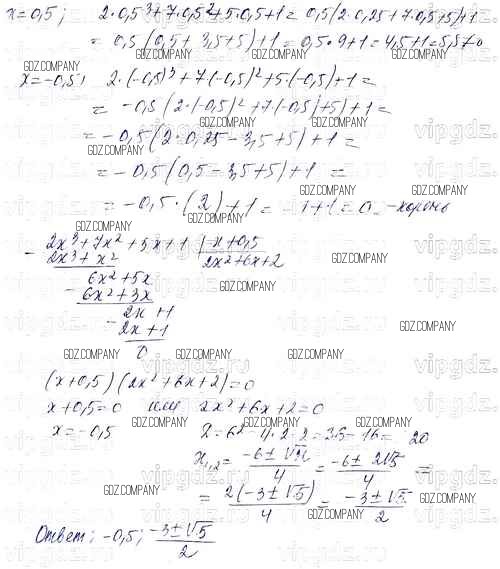 x=0,5; 2·0,5³+7·0,5²+5·0,5+1= 0,5(2·0,25+7·0,5+5)+1
= 0,5(0,5+3,5+5)+1=0,5·9+1=4,5+1=5,5≠0
x=-0,5; 2·(-0,5)³+7(-0,5)²+5(-0,5)+1=
= -0,5(2·(-0,5)²+7(-0,5)+5)+1=
= -0,5(2·0,25-3,5+5)+1=
= -0,5(0,5-3,5+5)+1 =
= -0,5·(2)+1 = -1+1=0 -корень
- 2x³+7x²+5x+1 | x+0,5
2x³+x² 2x²+6x+2
6x²+5x
- 6x²+3x
- 2x+1
2x+1
0
(x+0,5)(2x²+6x+2)=0
x+0,5=0 или 2x²+6x+2=0
x=-0,5 D=6²-4·2·2=36-16= 20
x₁,₂= (-6±√20)/4 = (-6±2√5)/4 =
= 2(-3±√5)/4 = (-3±√5)/2
Ответ; -0,5; (-3±√5)/2